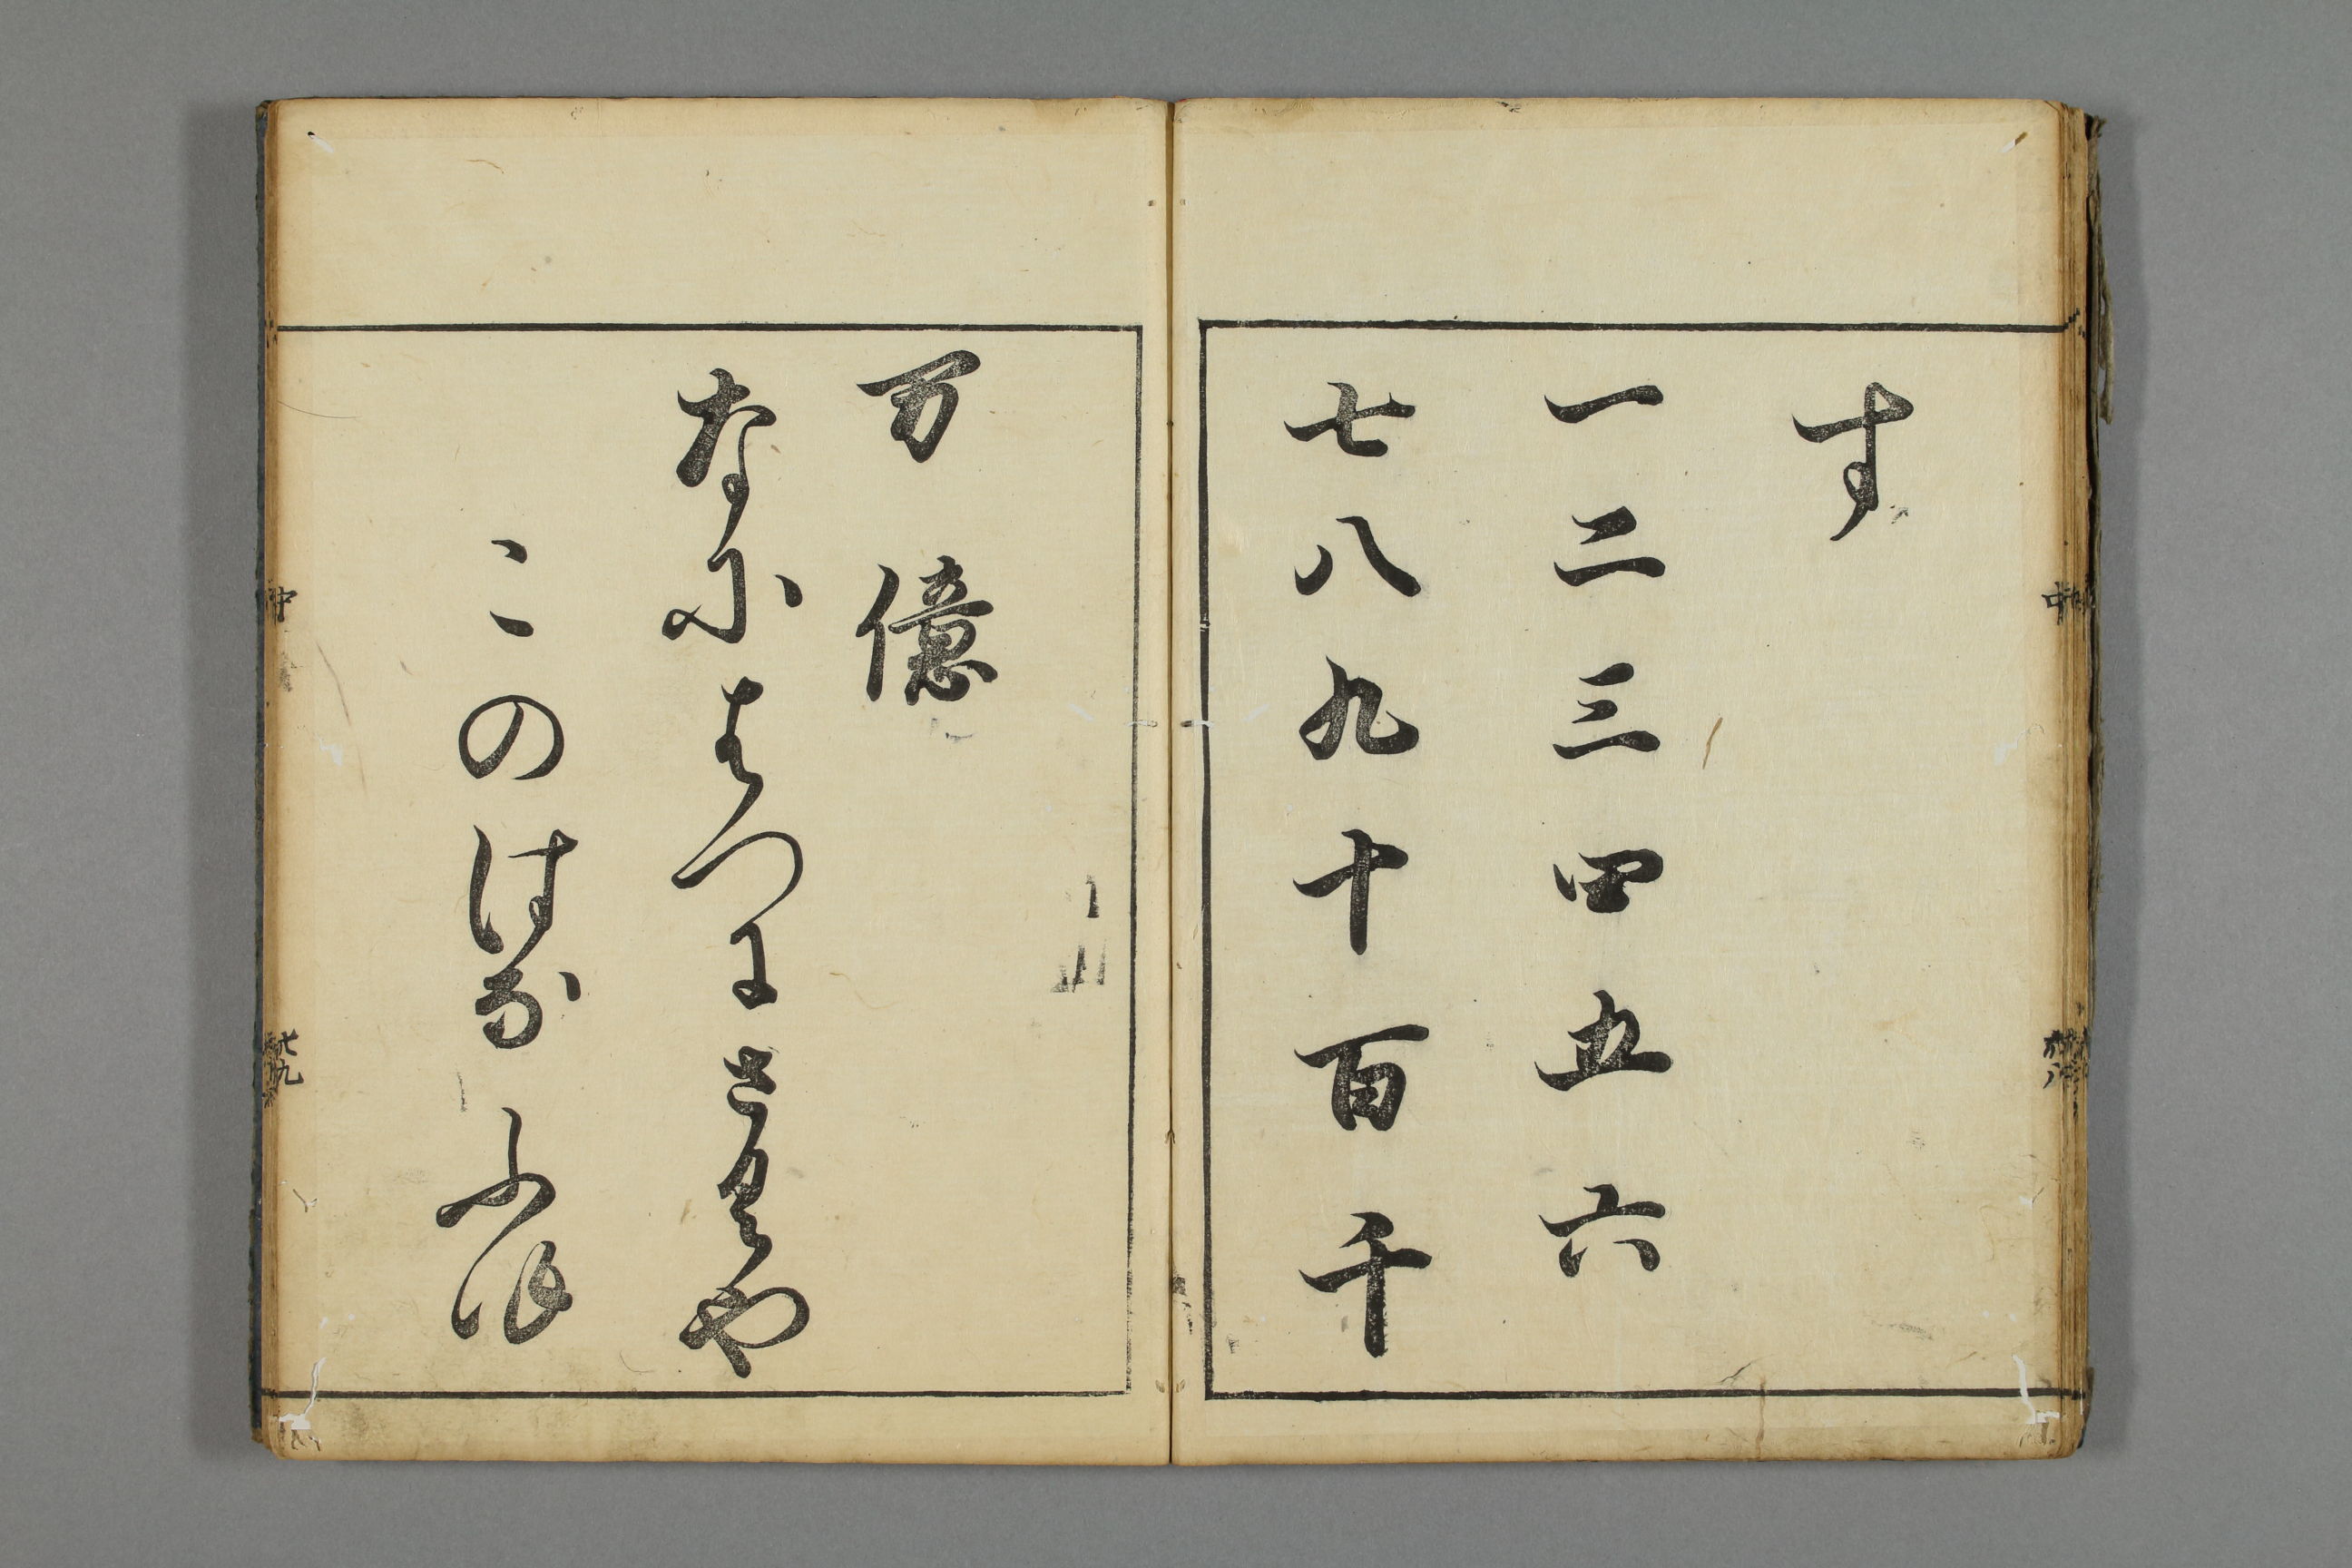 す
一二三四五六
七八九十百千
万億
なにはつにさくや
このはなふゆ
中
廿九